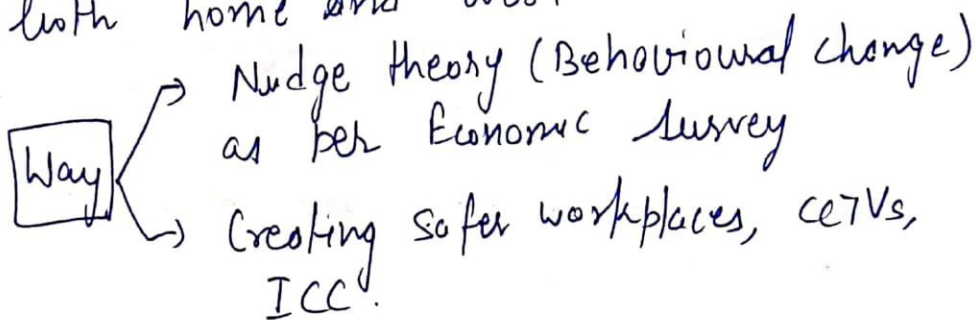 both home and
Nudge theory (Behavioural change)
as per Economic Survey
Way
Creating safer workplaces, CCTVs,
ICC.